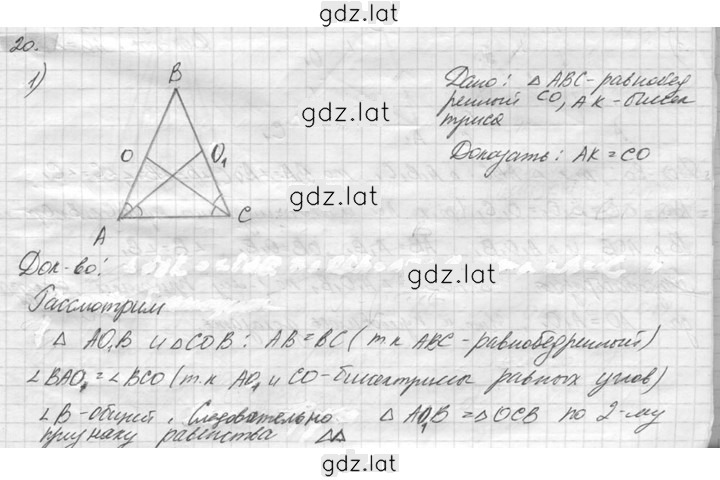 gdz.lat
20.
1)
B
Дано: △ ABC - равнобед
ренный CO, AK - биссек
триса
gdz.lat
O
O₁
Доказать: AK = CO
gdz.lat
A
C
Док-во:
gdz.lat
Рассмотрим
△ AO₁B и △COB: AB = BC (т.к ABC - равнобедренный)
∠BAO₁ = ∠BCO (т.к AO₁ и CO - биссектрисы равных углов)
∠B - общий. Следовательно △ AO₁B = △OCB по 2-му
признаку равенства △△
gdz.lat